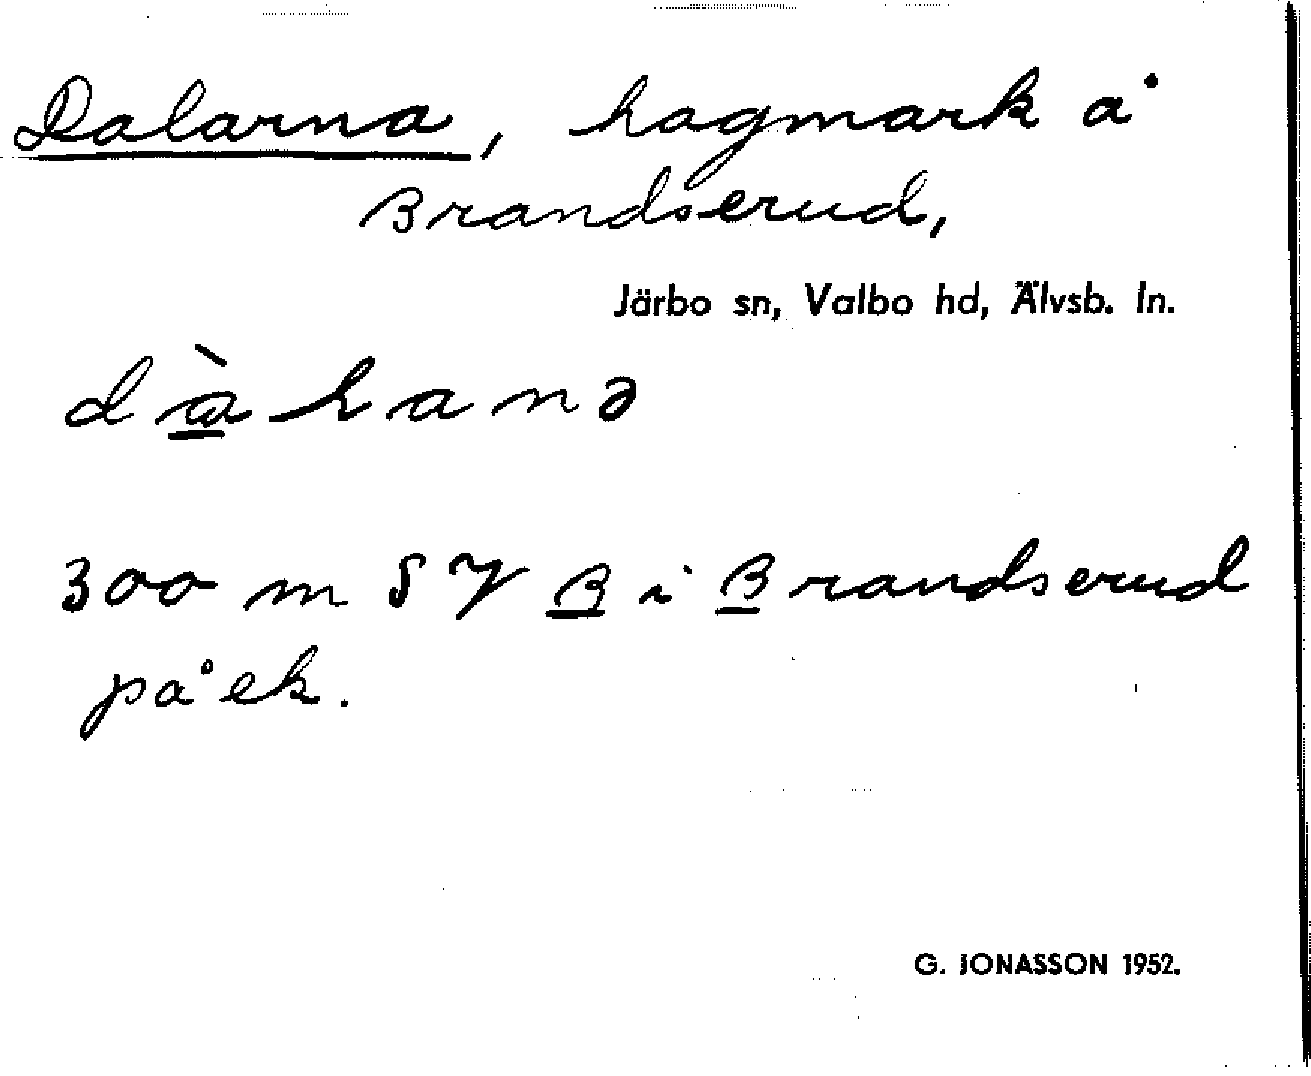 Dalarna, hagmark å
Brandserud,
Järbo sn, Valbo hd, Älvsb. ln.
300 m SV B i Brandserud
på ek.
G. JONASSON 1952.